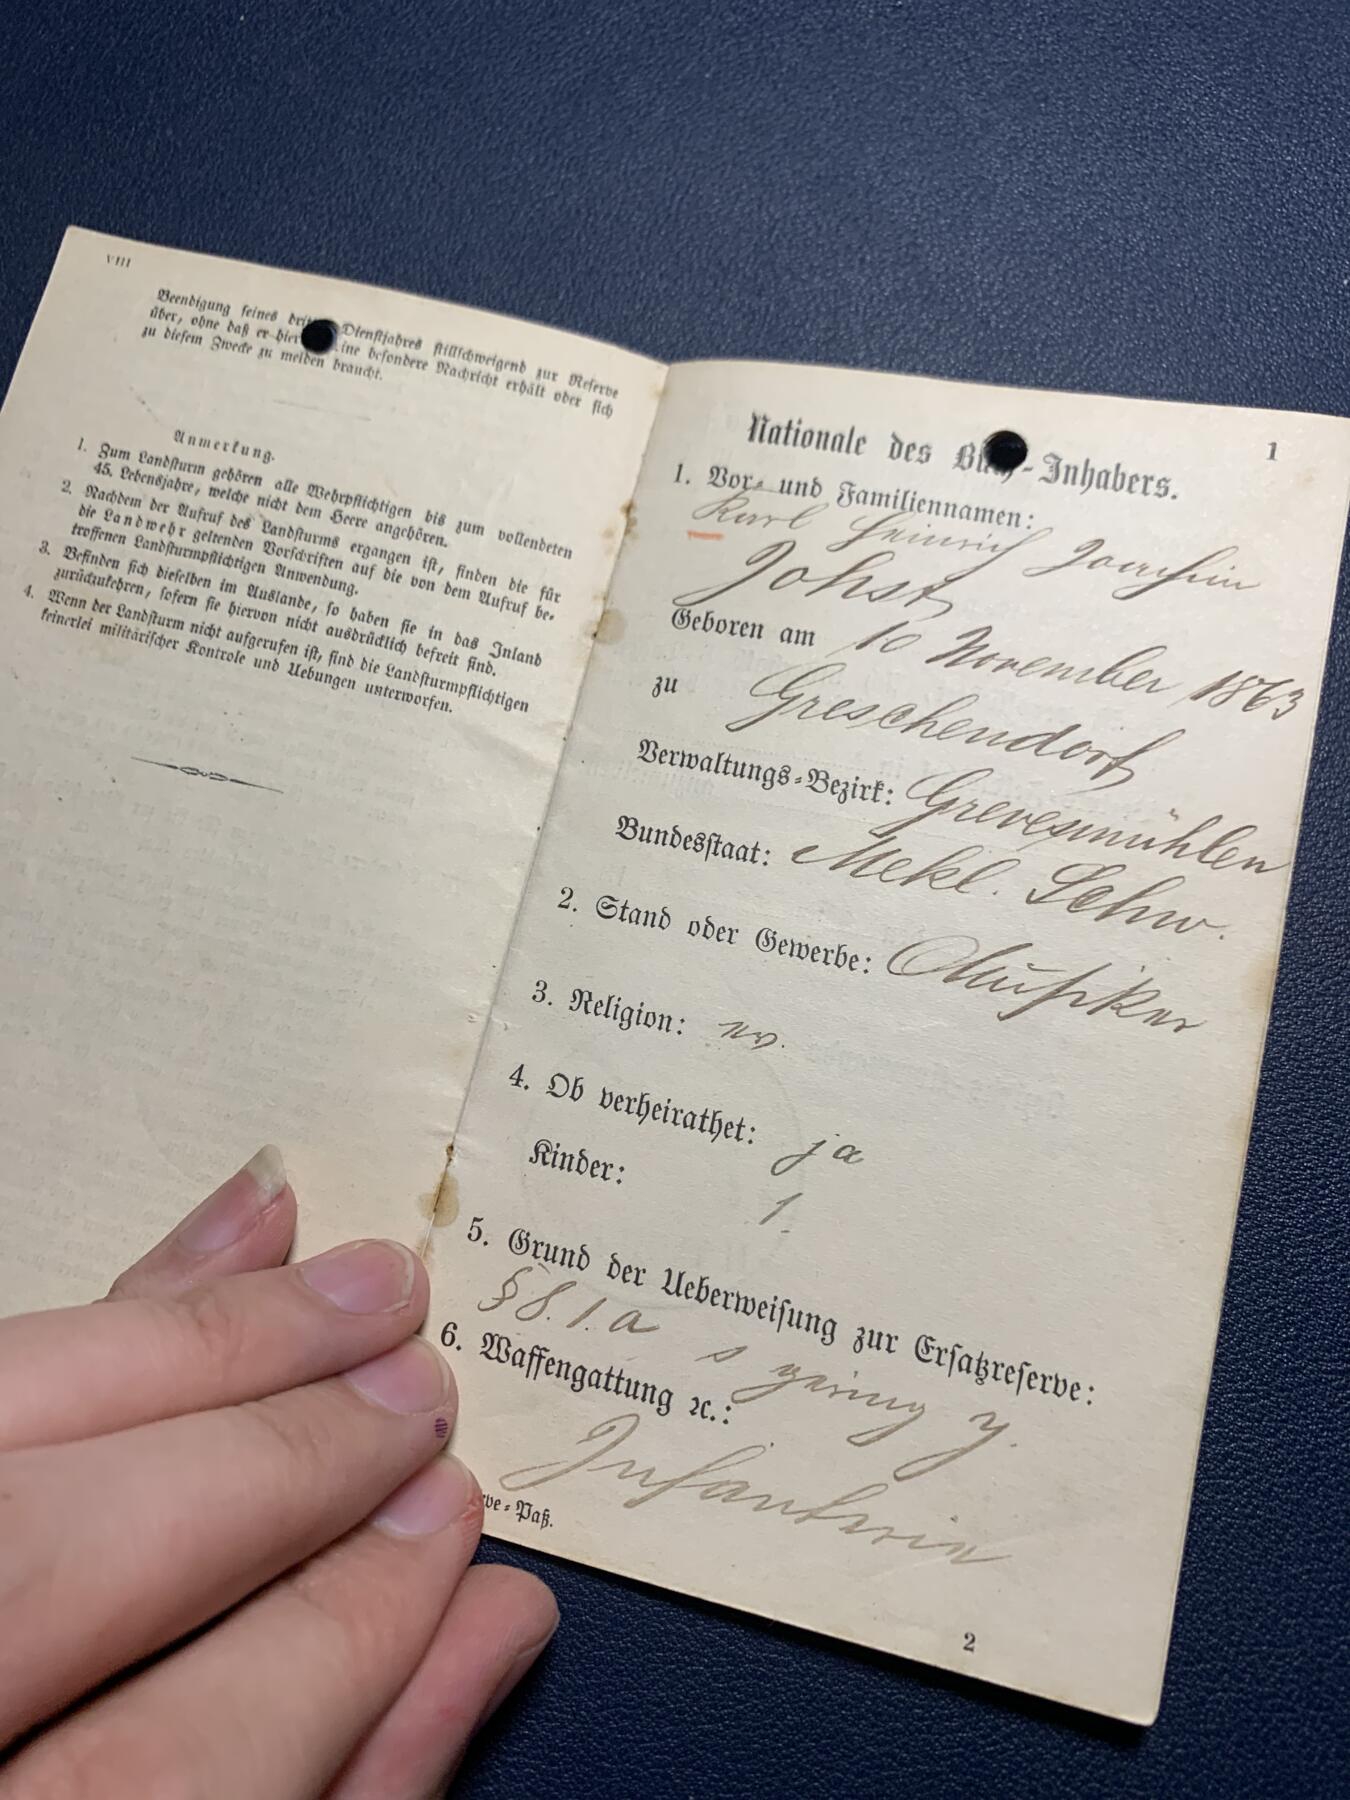 VIII
Beendigung seines Dienstjahres stillschweigend zur Reserve
über, ohne daß er eine besondere Nachricht erhält oder sich
zu diesem Zwecke zu melden braucht.
Anmerkung.
1. Zum Landsturm gehören alle Wehrpflichtigen bis zum vollendeten
45. Lebensjahre, welche nicht dem Heere angehören.
2. Nachdem der Aufruf des Landsturms ergangen ist, finden die für
die Landwehr geltenden Vorschriften auf die von dem Aufruf be-
troffenen Landsturmpflichtigen Anwendung.
3. Befinden sich dieselben im Auslande, so haben sie in das Inland
zurückzukehren, sofern sie hiervon nicht ausdrücklich befreit sind.
4. Wenn der Landsturm nicht aufgerufen ist, sind die Landsturmpflichtigen
keinerlei militärischer Kontrole und Uebungen unterworfen.
1
Nationale des Buch-Inhabers.
1. Vor- und Familiennamen:
Karl Heinrich Joachim
Johst
Geboren am 10 November 1863
zu Greschendorf
Verwaltungs-Bezirk: Grevesmühlen
Bundesstaat: Mekl. Schw.
2. Stand oder Gewerbe: Musiker
3. Religion: ev.
4. Ob verheirathet: ja
Kinder: 1.
5. Grund der Ueberweisung zur Ersatzreserve:
§ 8. 1. a
6. Waffengattung ꝛc.:
Infanterie
ve-Paß.
2